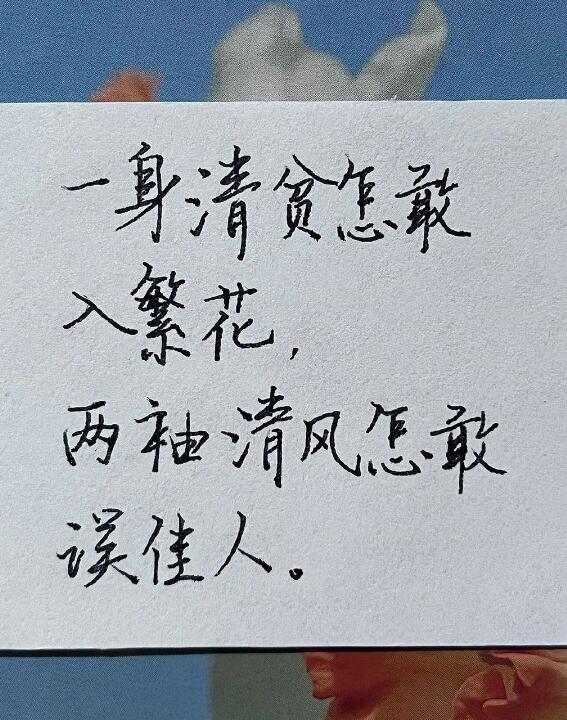 一身清贫怎敢
入繁花，
两袖清风怎敢
误佳人。